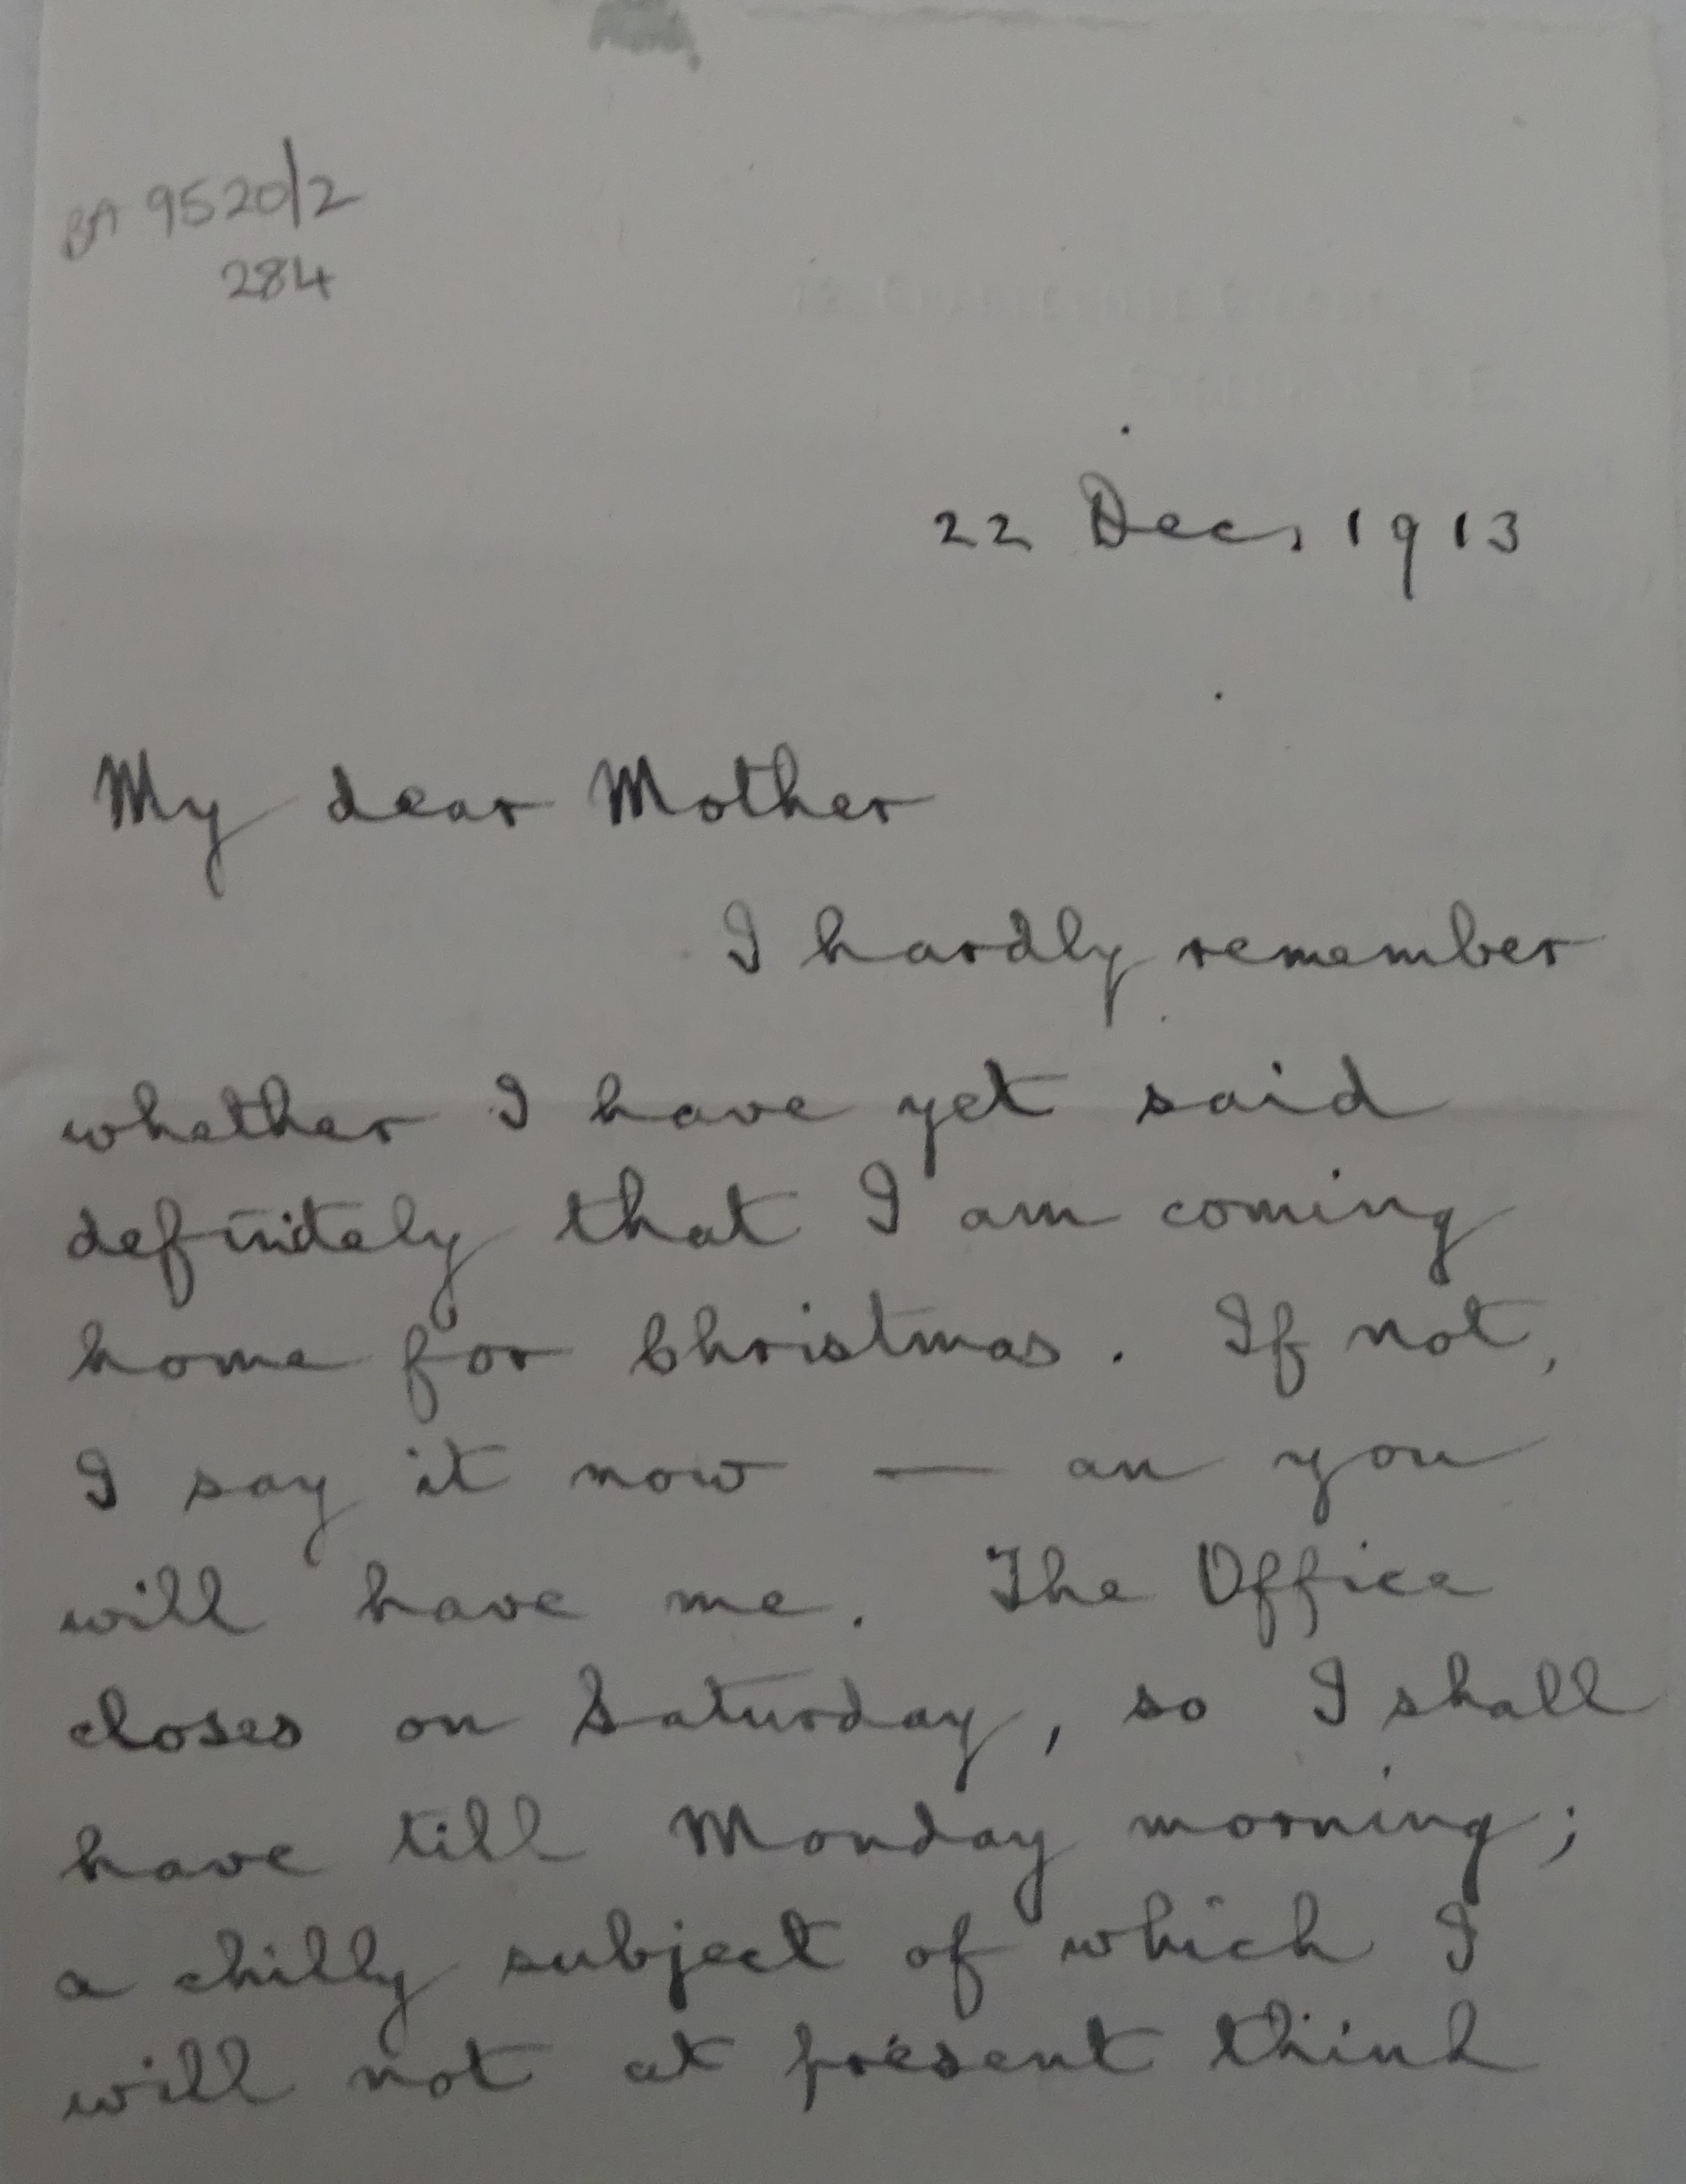 BA 9520/2
284
22 Dec, 1913
My dear Mother
I hardly remember
whether I have yet said
definitely that I am coming
home for Christmas. If not,
I say it now — an you
will have me. The Office
closes on Saturday, so I shall
have till Monday morning;
a chilly subject of which I
will not at present think